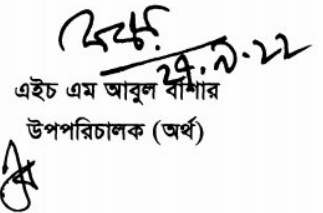 ২৭.৯.২২
এইচ এম আবুল বাশার
উপপরিচালক (অর্থ)